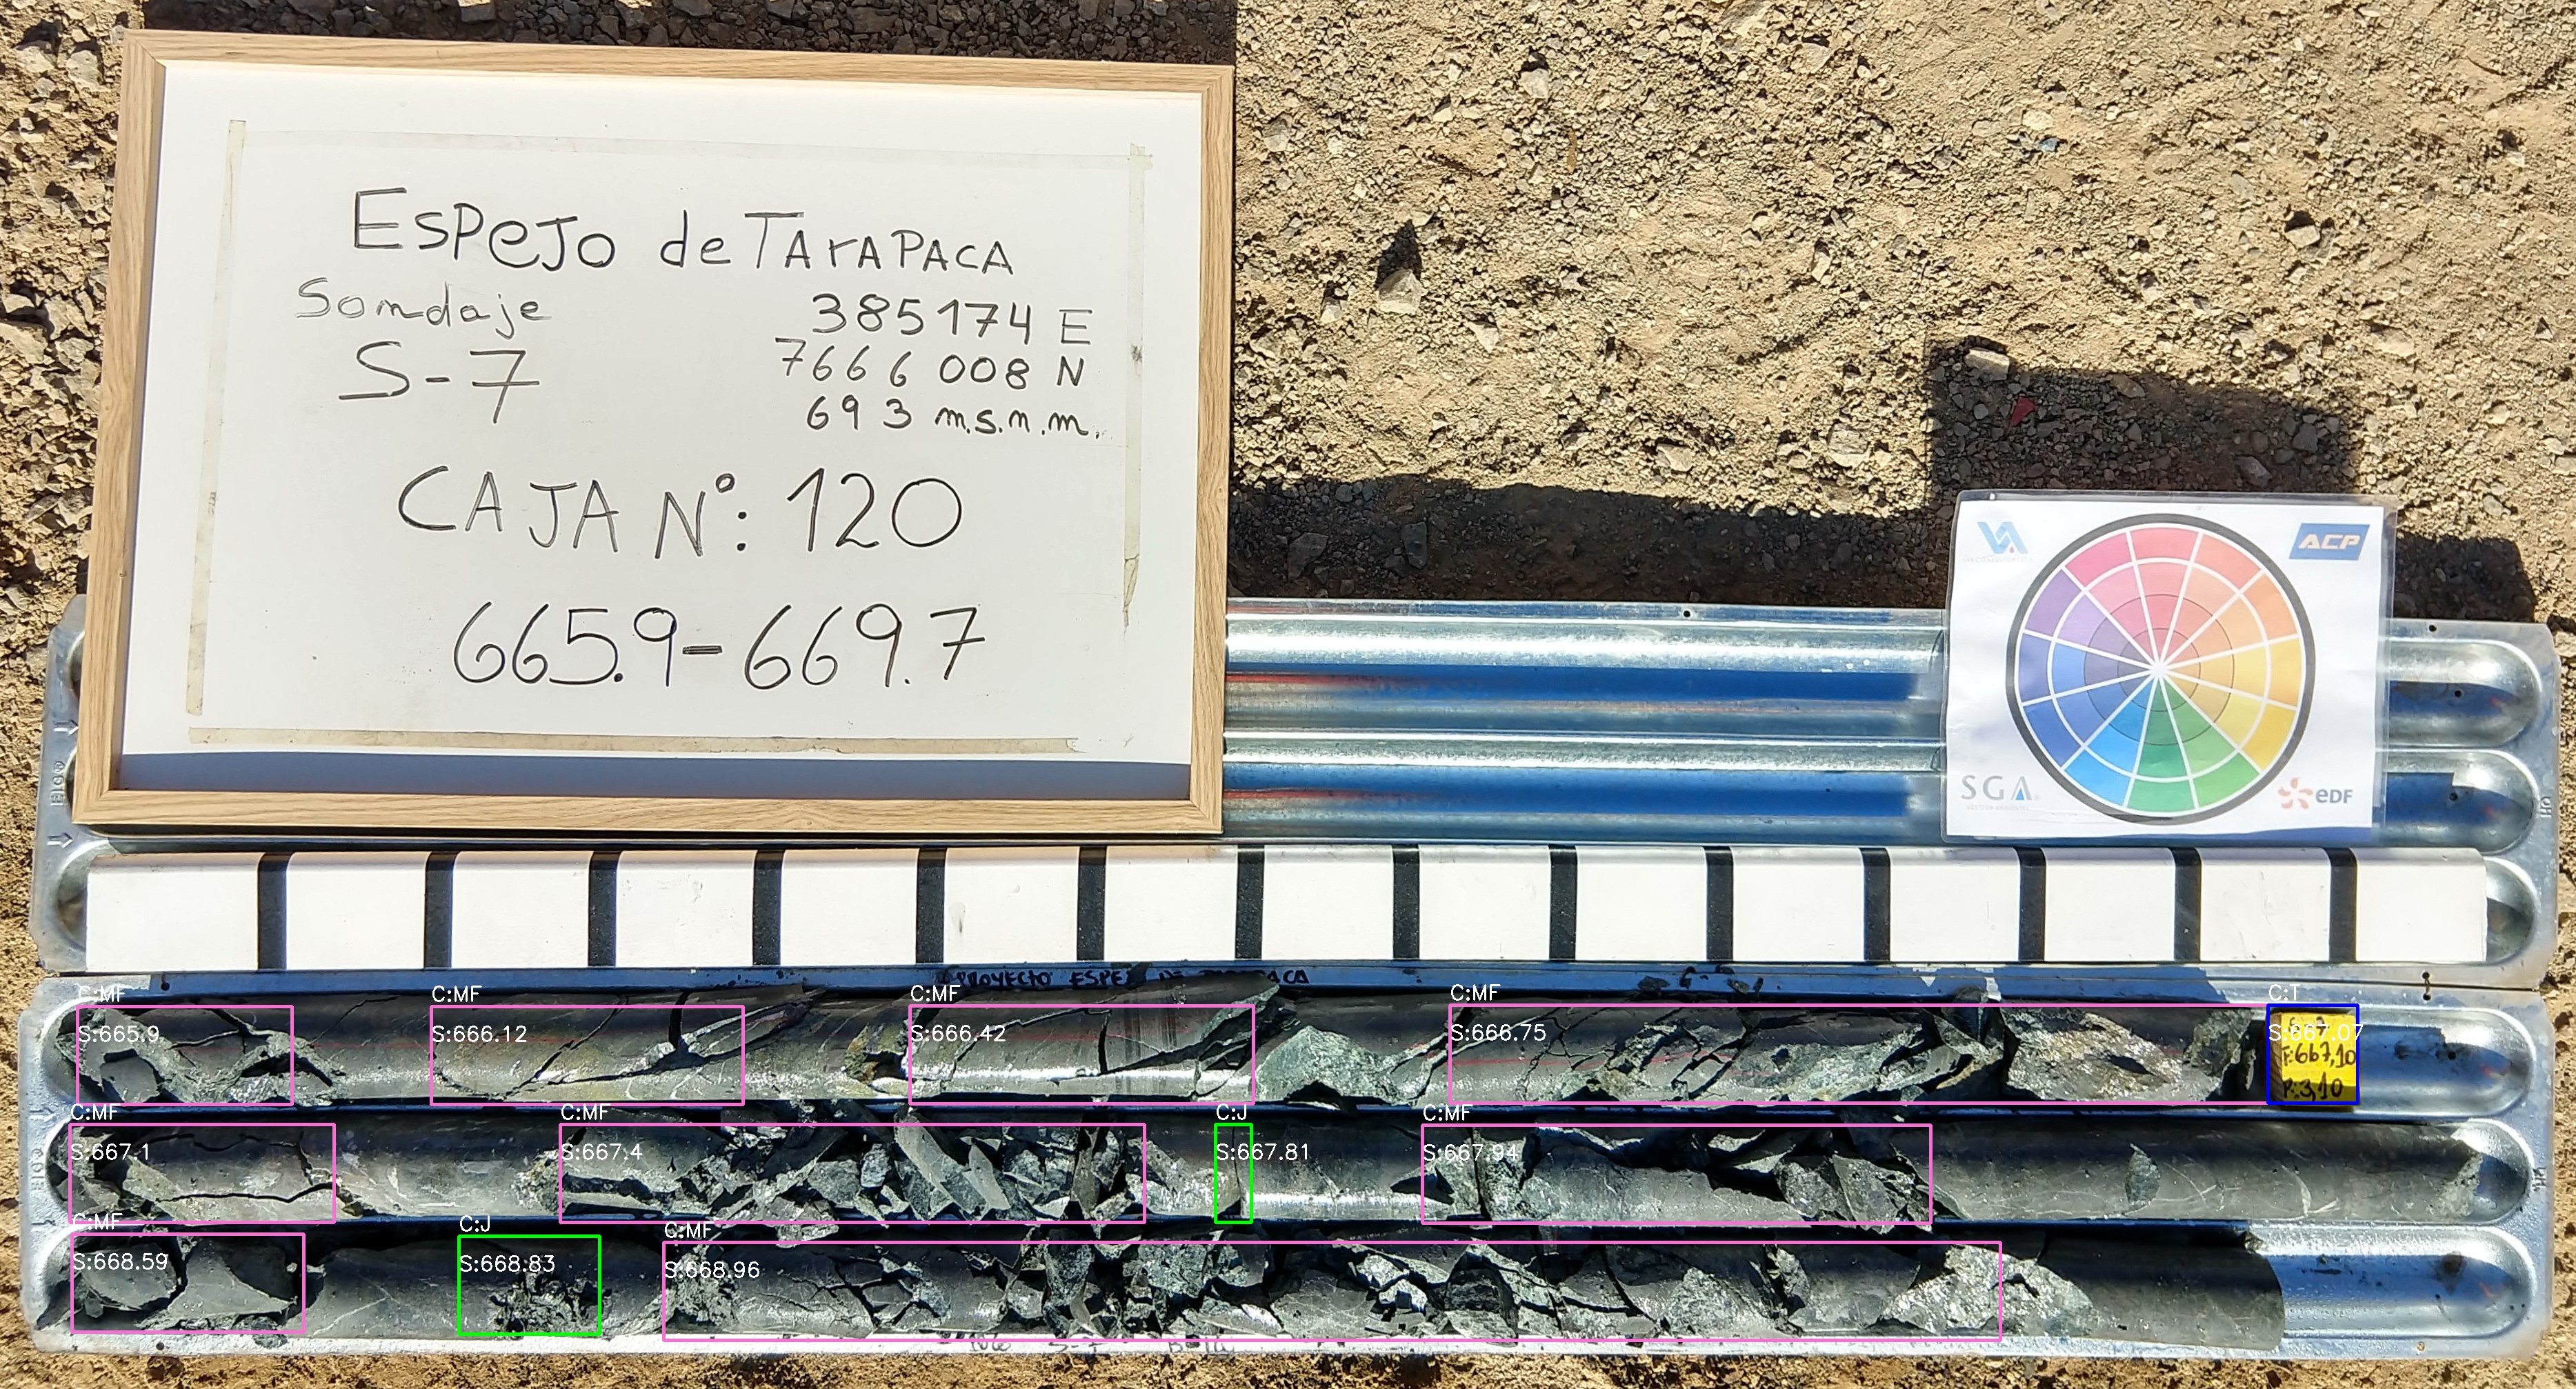 ESPEJO de TARAPACA
Sondaje
385174 E
S-7
7666 008 N
693 m.s.n.m.
CAJA N°: 120
665.9-669.7
VA
ACP
SGA
eDF
PROYECTO ESPE
C:MF
S:665.9
C:MF
S:666.12
C:MF
S:666.42
C:MF
S:666.75
C:T
S:667.07
F:667,10
R:3,10
C:MF
S:667.1
C:MF
S:667.4
C:J
S:667.81
C:MF
S:667.94
C:MF
S:668.59
C:J
S:668.83
C:MF
S:668.96